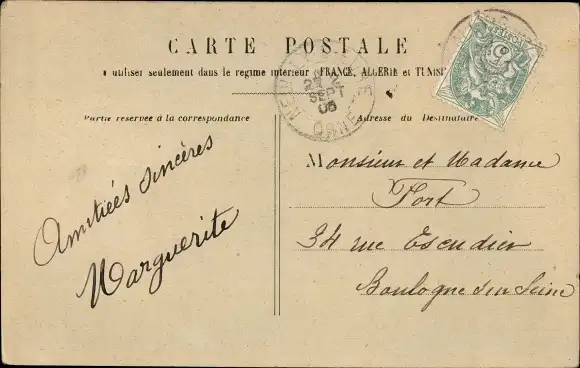 CARTE POSTALE
à utiliser seulement dans le régime intérieur (FRANCE, ALGERIE et TUNISI
Partie réservée à la correspondance
Adresse du Destinataire
Amitiées sincères
Marguerite
Monsieur et Madame
Fort
34 rue Escudier
Boulogne sur Seine
ORNE